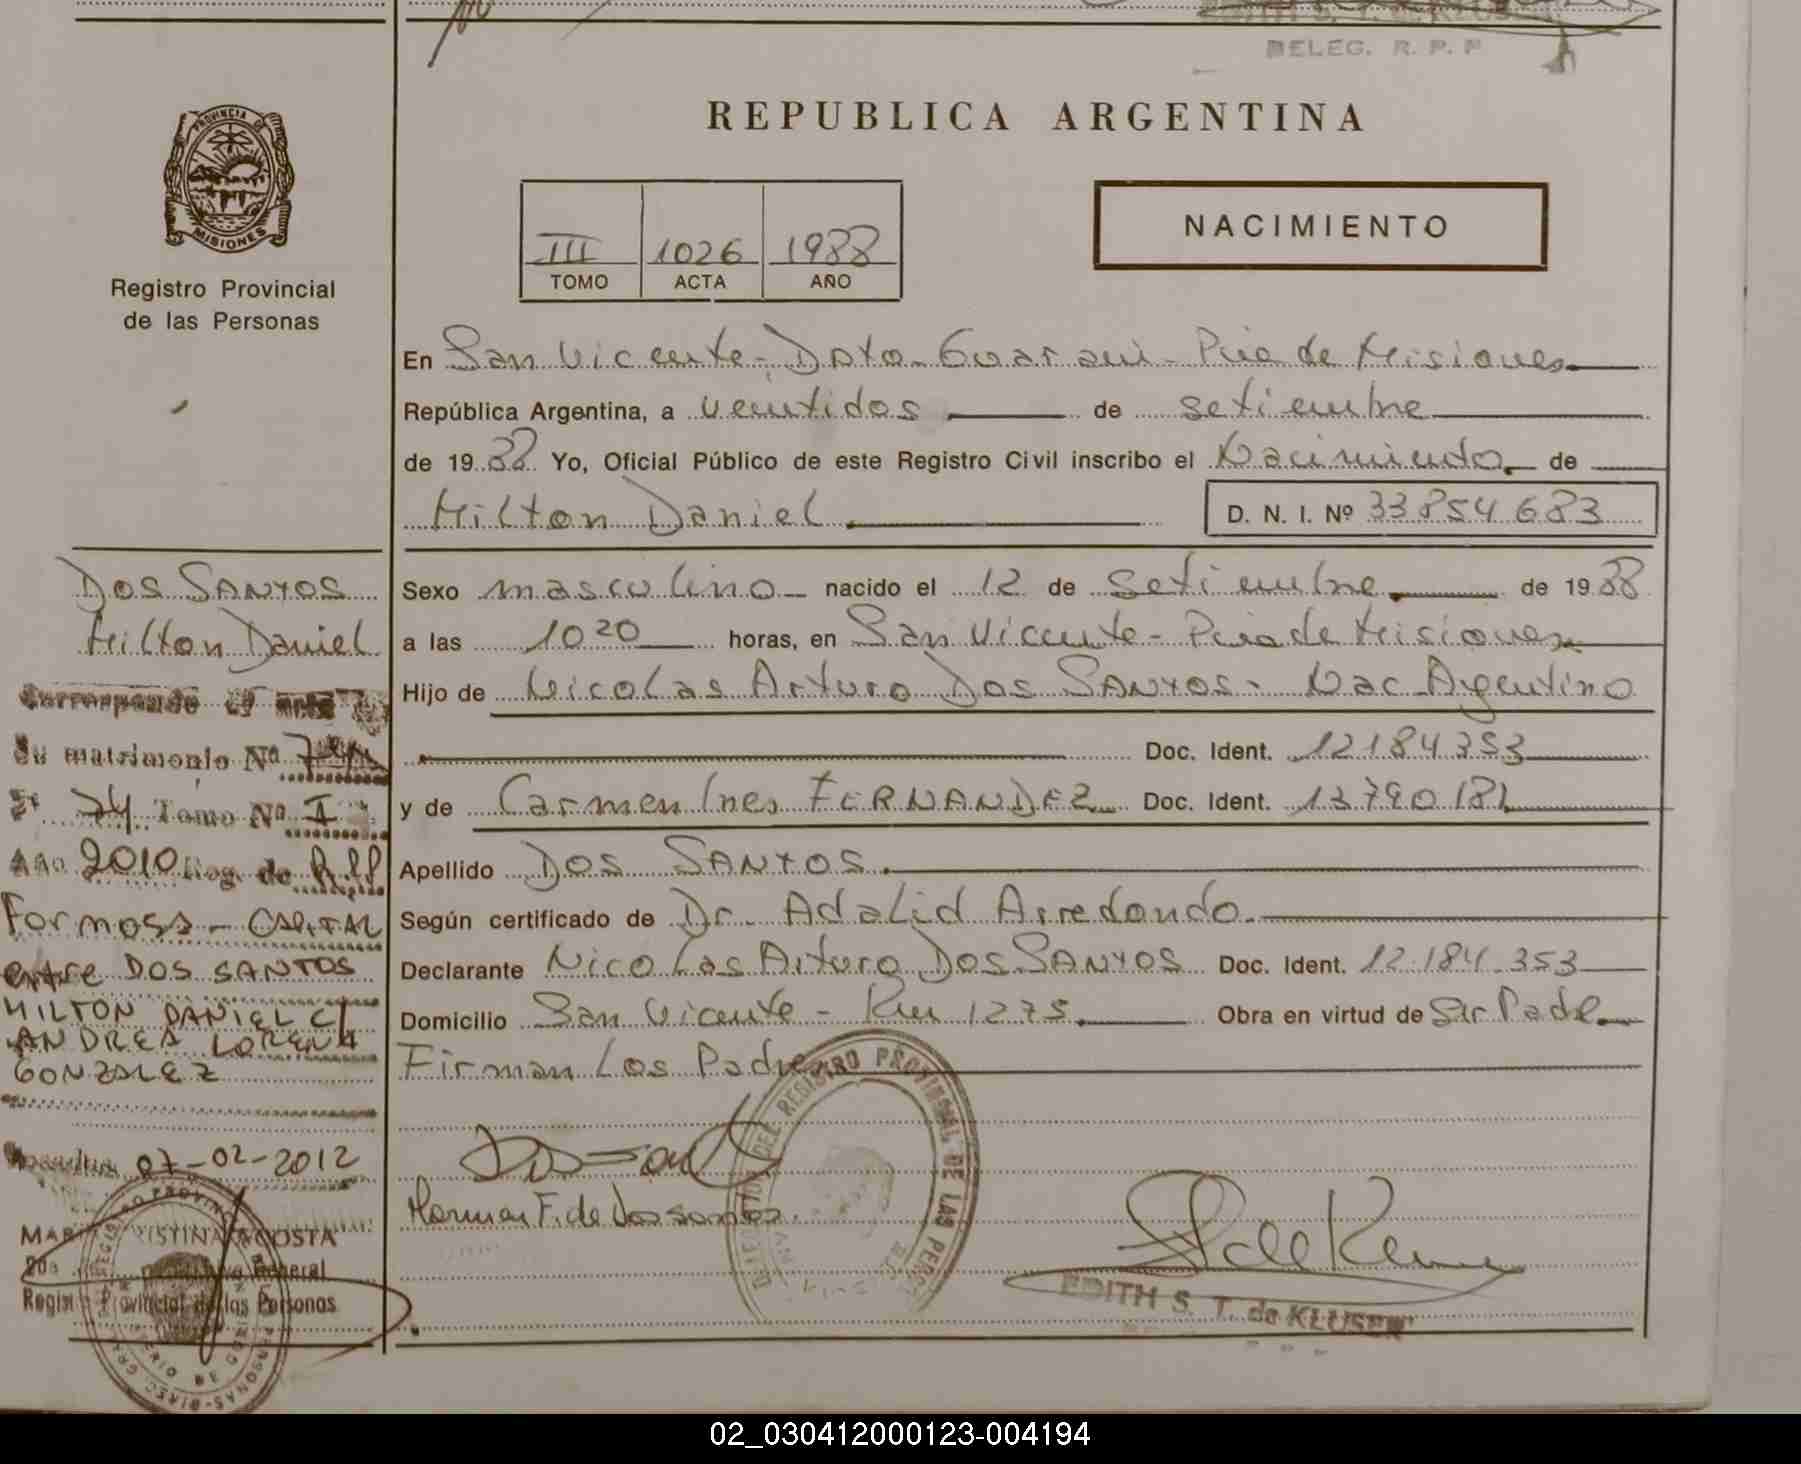 DELEG. R. P. P
PROVINCIA DE
MISIONES
Registro Provincial
de las Personas
REPUBLICA ARGENTINA
III 1026 1988
TOMO ACTA AÑO
NACIMIENTO
En San Vicente - Dpto. Guarani - Pcia de Misiones
República Argentina, a veintidos de setiembre
de 1988 Yo, Oficial Público de este Registro Civil inscribo el Nacimiento de
Milton Daniel D. N. I. Nº 33854683
Sexo masculino nacido el 12 de setiembre de 1988
a las 10 20 horas, en San Vicente - Pcia de Misiones
Hijo de Nicolas Arturo Dos SANTOS - Nac. Argentino
Doc. Ident. 12184353
y de Carmen Ines FERNANDEZ Doc. Ident. 13790181
Apellido DOS SANTOS
Según certificado de Dr. Adalid Arredondo
Declarante Nicolas Arturo DOS SANTOS Doc. Ident. 12.184.353
Domicilio San Vicente - Km 1275 Obra en virtud de ser Padre
Firman Los Padres
DOS SANTOS
Milton Daniel
Corresponde el acta
Su matrimonio Nº
Fº 74 Tomo Nº I
Año 2010 Reg. de
Formosa - CAPITAL
entre DOS SANTOS
MILTON DANIEL c/
ANDREA LORENA
GONZALEZ
07-02-2012
ACOSTA
General
Registro Provincial de las Personas
DEL REGISTRO PROVINCIAL DE LAS PERS
F. de Dos santos
EDITH S. T. de KLUSEN
02_030412000123-004194